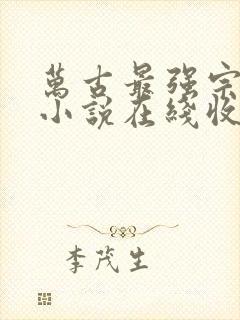 萬古最强宗
小說在綫收
李茂生